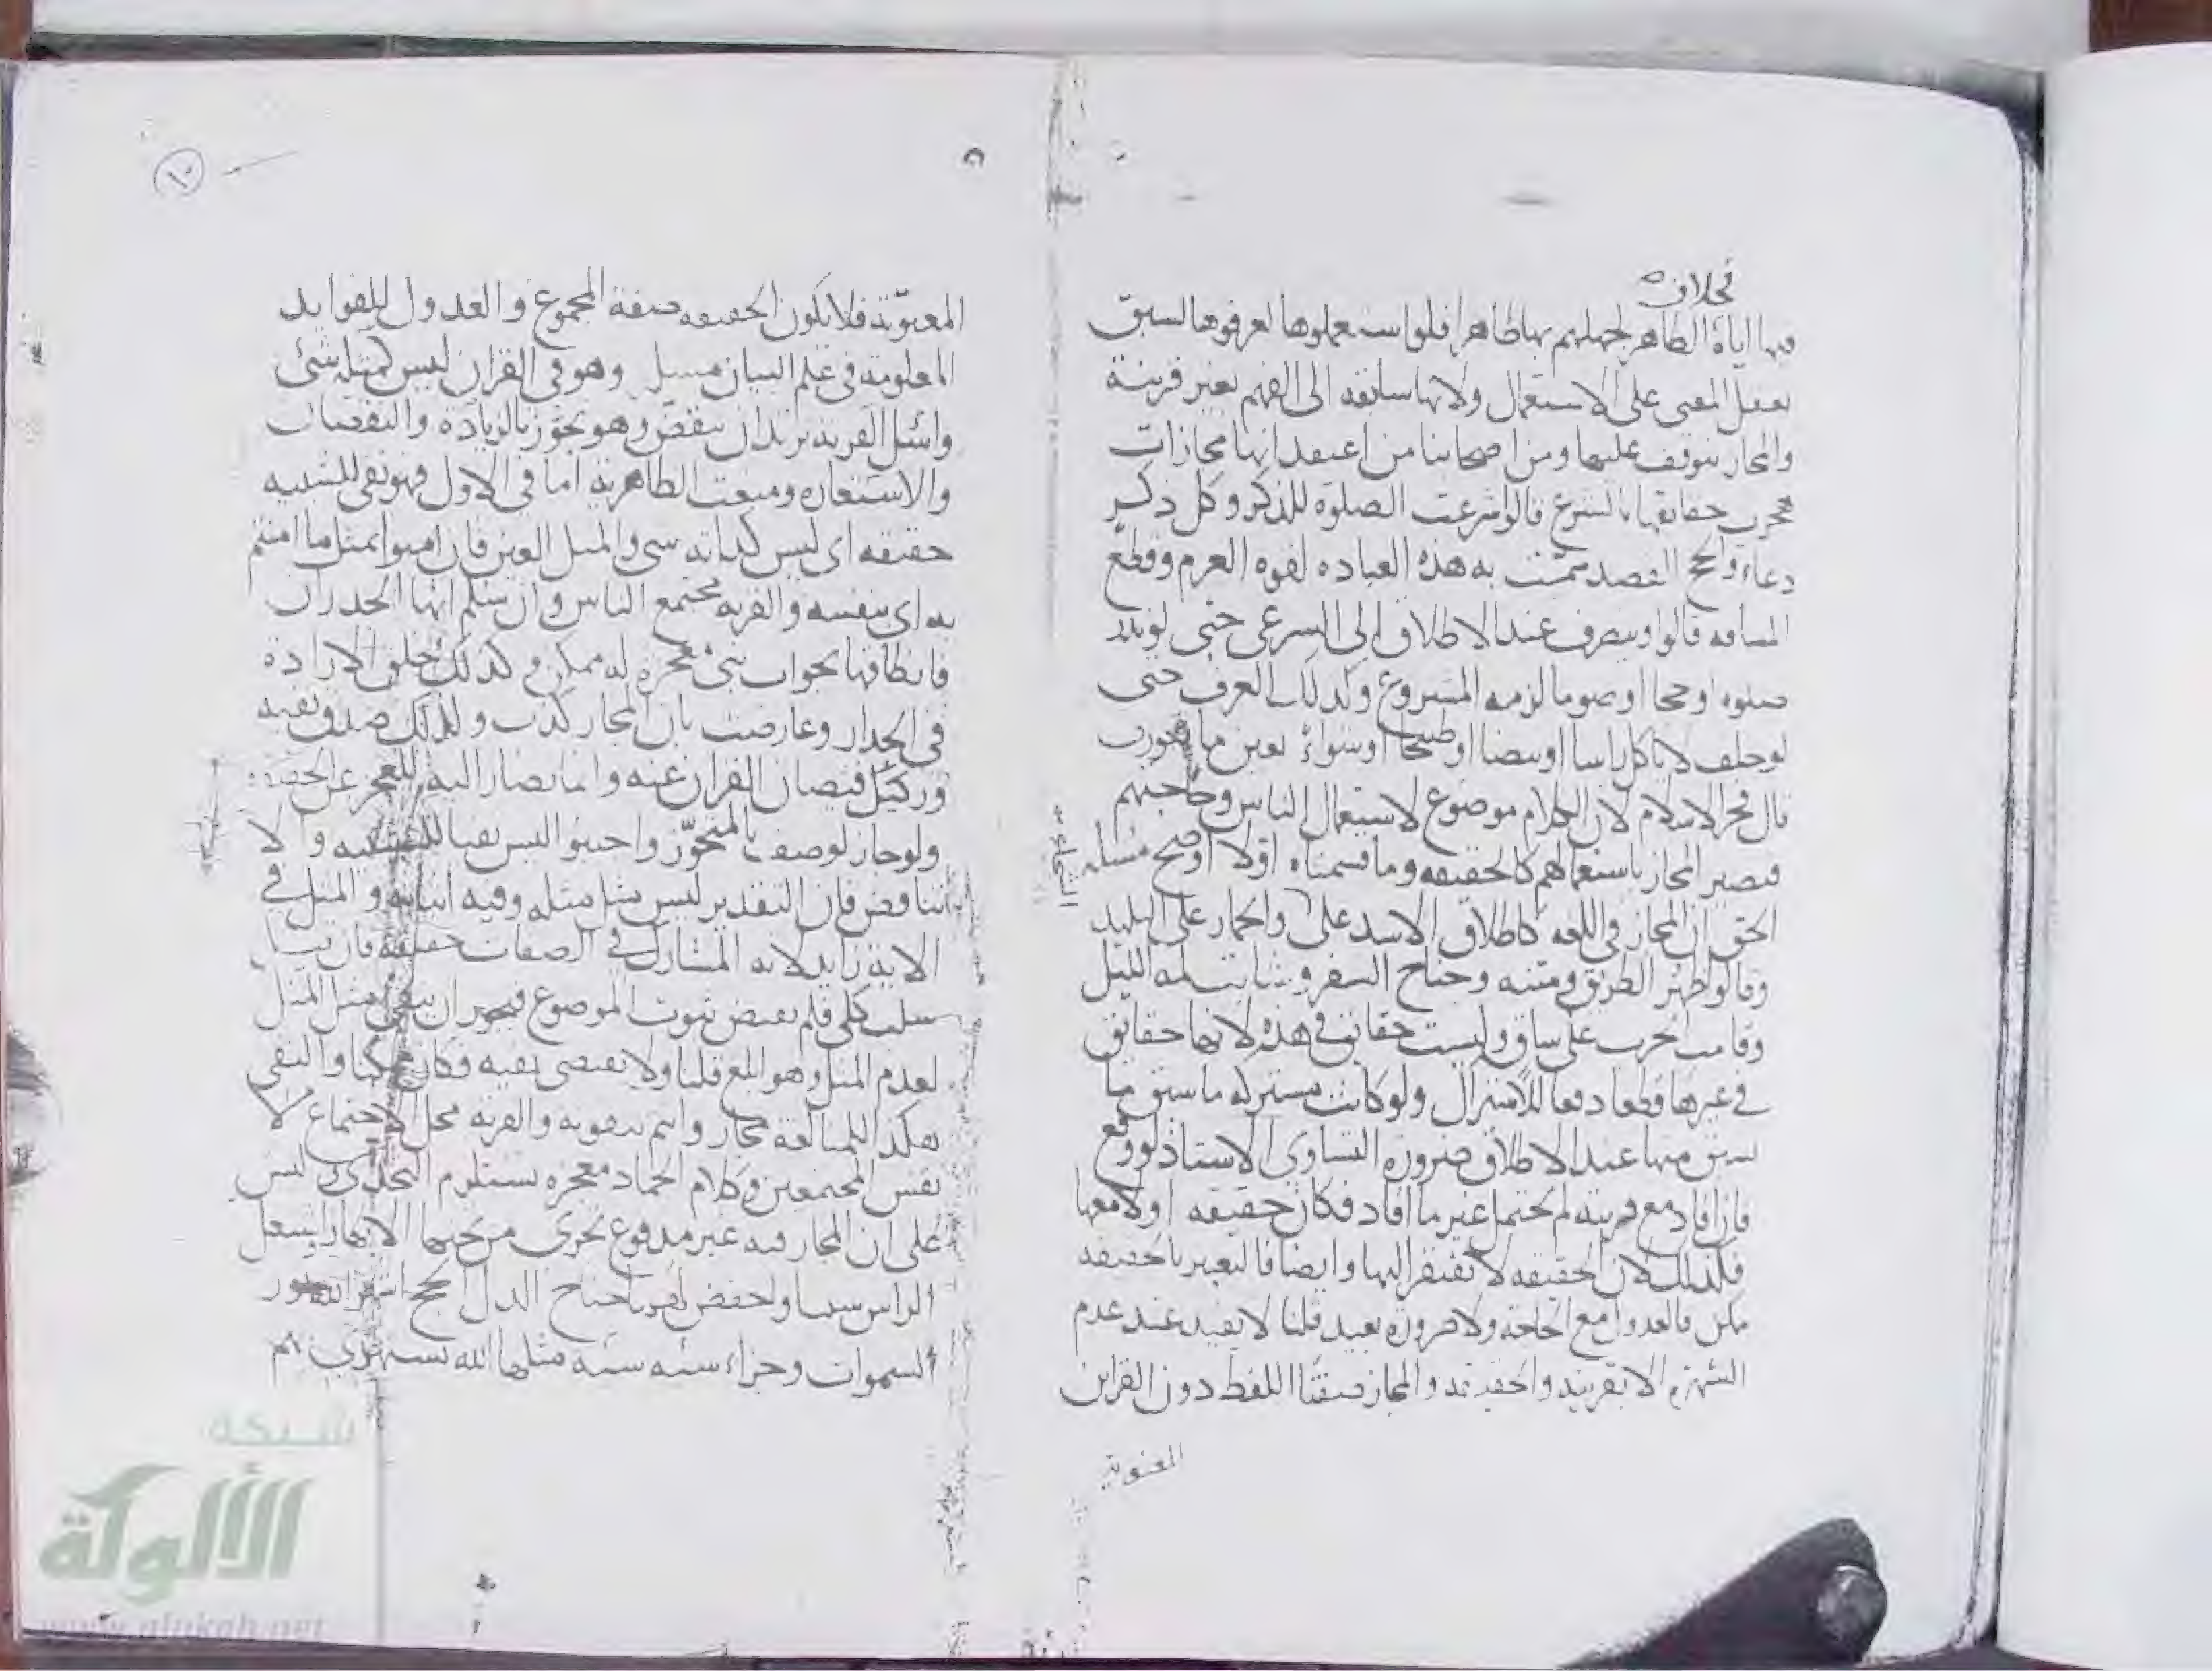 بخلاف
منها اباه الظاهر لجهلهم بها ظاهرا فلو استعملوها لعرفوها لسبق
تعقل المعنى على الاستعمال ولانها سابقه الى الفهم بغير قرينة
والمجاز يتوقف عليها ومن اصحابنا من اعتقد انها مجازات
هجرت حقايقها بالشرع قالوا شرعت الصلوة للذكر وكل ذكر
دعاء والحج القصد سميت به هذه العباده لقوه العزم وقطع
المسافه قالوا وينصرف عند الاطلاق الى الشرعي حتى لو نذر
صلوه او حجا او صوما لزمه المشروع وكذلك العرف حتى
لو حلف لا ياكل راسا او بيضا او طبيخا او شواء تعين ما تعورف
قال فخر الاسلام لان الكلام موضوع لاستعمال الناس وحاجتهم
فيصير المجاز باستعمالهم كالحقيقه وما قسمناه اولا اوضح مسله
الحق ان المجاز في اللغه كاطلاق الاسد على والحمار على البليد
وقالوا ظهر الطريق ومتنه وجناح السفر وشابت لمه الليل
وقامت الحرب على ساق وليست حقايق في هذه لانها حقايق
في غيرها قطعا دفعا للاشتراك ولو كانت مشتركه ما سبق ما
سبق منها عند الاطلاق ضرورة التساوي الاستاذ لو وقع
فان افاد مع قرينه لم يحتمل غير ما افاد فكان حقيقه او لا معها
فكذلك لان الحقيقه لا تفتقر اليها وايضا فالتعبير بالحقيقه
ممكن فالعدول مع الحاجة ولا ضرورة بعيد قلنا لا يفيد عند عدم
الشهرة الا بقرينه والحقيقه والمجاز صفتا اللفظ دون القراين
المعنوية
المعنوية فلا تكون الحقيقه صفة المجموع والعدول للفوايد
المعلومة في علم البيان مسله وهو في القران ليس كمثله شئ
واسئل القريه يريد ان ينقض وهو تجوز بالزيادة والنقصان
والاستعاره ومنعت الظاهرية اما في الاول فهو نفي للتشبيه
حقيقه اي ليس كذاته شي والمثل العين فان امنوا بمثل ما امنتم
به اي بنفسه والقريه مجتمع الناس وان سلم انها الجدران
فانطاقها بجواب نبي معجزه له ممكن وكذلك خلق الارادة
في الجدار وعارضت بان المجاز كذب ولذلك صدق نفيه
وركيك فيصان القران عنه وانما يصار اليه للعجز عن الحقيقه
ولو جاز لوصف بالمتجوز واجيبوا ليس نفيا للتشبيه والا
تناقض فان التقدير ليس مثل مثله وفيه اثباته والمثل في
الاية زايد لانه المشارك في الصفات حقيقه فان قيل
سلب كلي فلم يقتض ثبوت الموضوع فيجوز ان ينفي مثل المثل
لعدم المثل وهو المع قلنا ولا يقتضي نفيه وكان والنفي
هكذا للمبالغة مجاز وانتم تنفونه والقريه محل الاجتماع لا
نفس المجتمعين وكلام الجماد معجزه يستلزم التحدي وليس
على ان المجاز فيه غير مدفوع تجري من تحتها الانهار اشتعل
الراس شيبا واخفض لهما جناح الذل الحج اشهر الله نور
السموات وجزاء سيئه سيئه مثلها الله يستهزئ بهم
شبكة
الألوكة
www.alukah.net